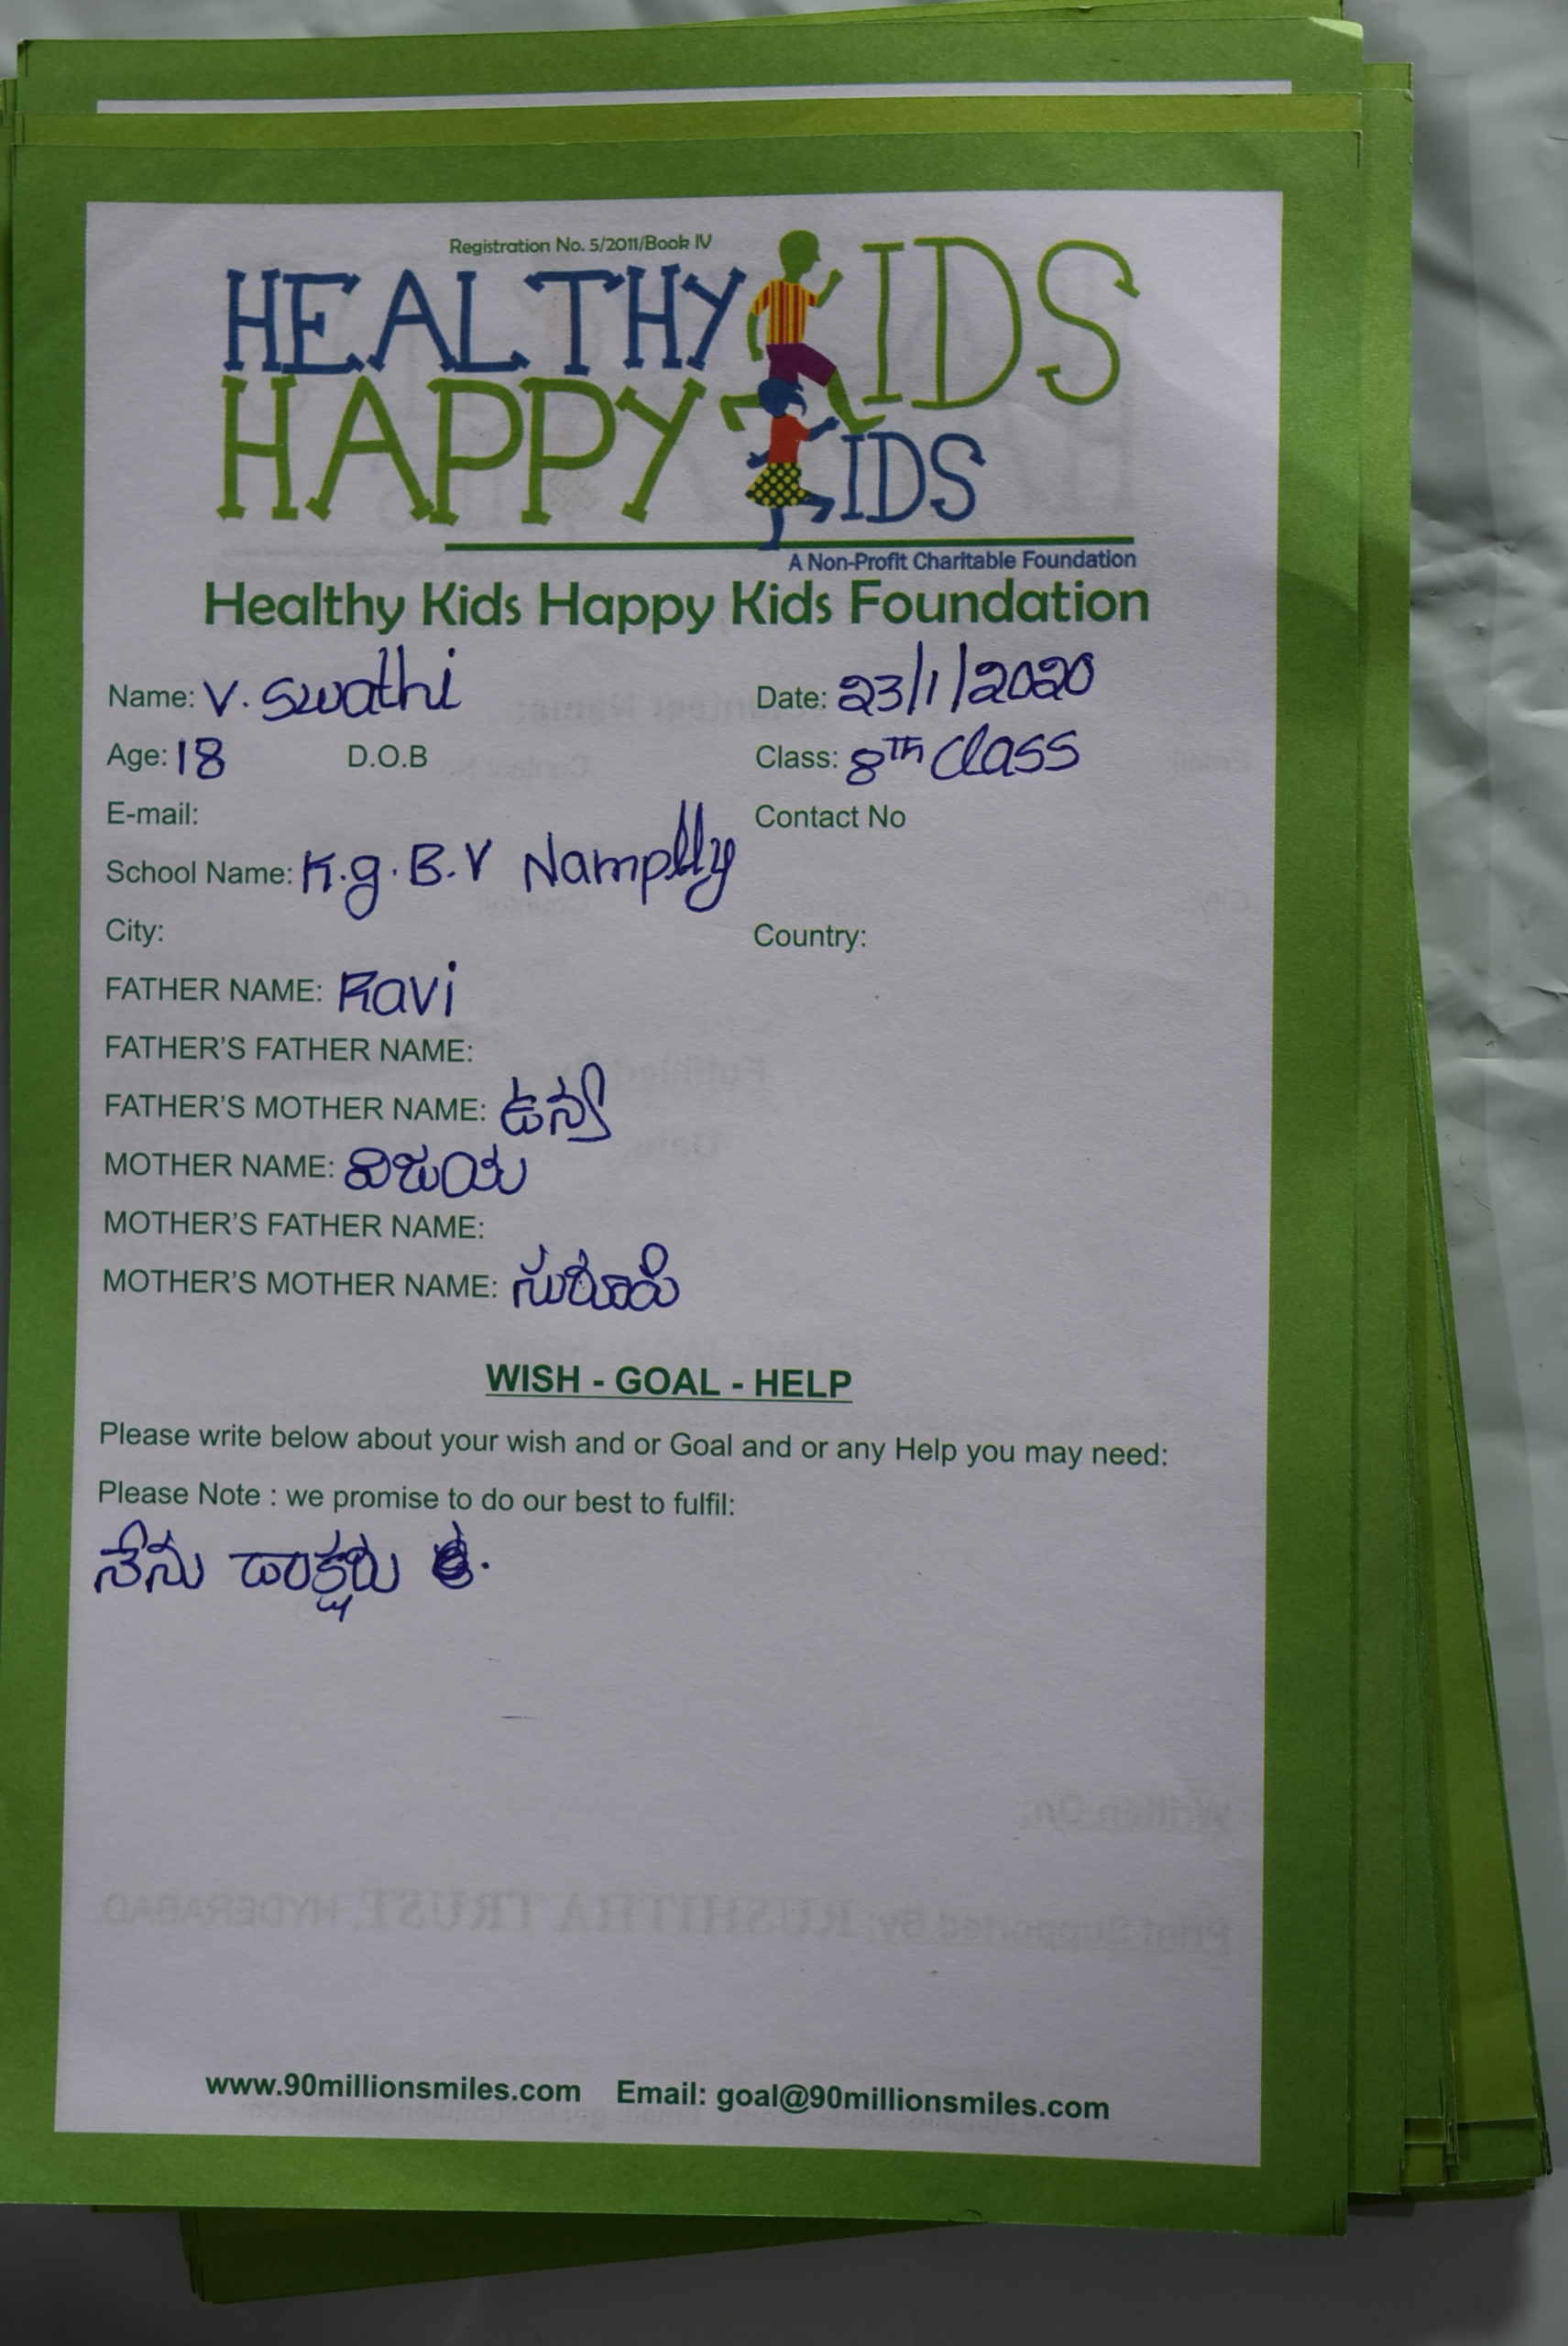 Registration No. 5/2011/Book IV
HEALTHY KIDS
HAPPY KIDS
A Non-Profit Charitable Foundation
Healthy Kids Happy Kids Foundation
Name: V. Swathi Date: 23/1/2020
Age: 18 D.O.B Class: 8th Class
E-mail: Contact No
School Name: K.g.B.V Namplly
City: Country:
FATHER NAME: Ravi
FATHER'S FATHER NAME:
FATHER'S MOTHER NAME:
MOTHER NAME: విజయ
MOTHER'S FATHER NAME:
MOTHER'S MOTHER NAME:
WISH - GOAL - HELP
Please write below about your wish and or Goal and or any Help you may need:
Please Note : we promise to do our best to fulfil:
నేను డాక్షరు
www.90millionsmiles.com Email: goal@90millionsmiles.com